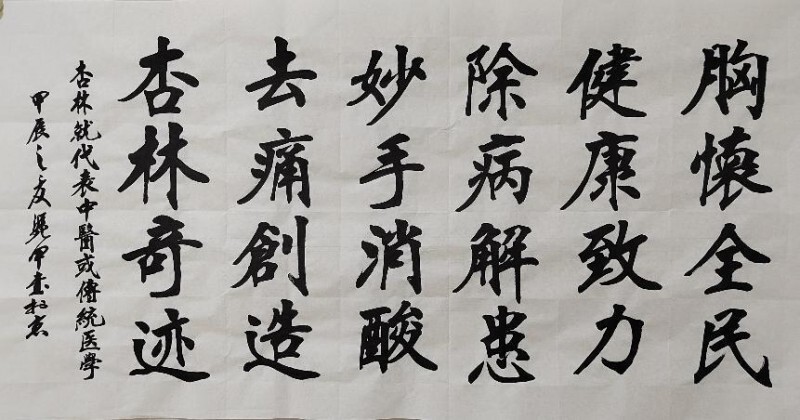 胸懷全民
健康致力
除病解患
妙手消酸
去痛創造
杏林奇迹
杏林就代表中醫或傳統医學
甲辰之夏